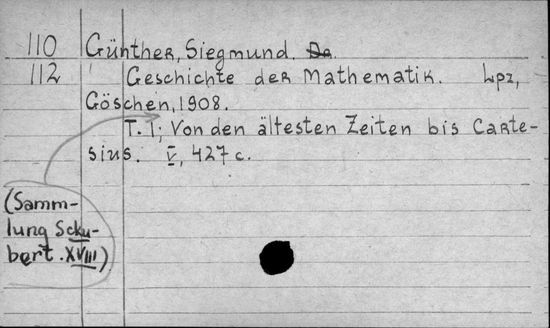 110 Günther, Siegmund. De
112 Geschichte der Mathematik. Lpz,
Göschen, 1908.
T. I; Von den ältesten Zeiten bis Carte-
sius. V, 427 c.
(Samm-
lung Schu-
bert. XVIII)